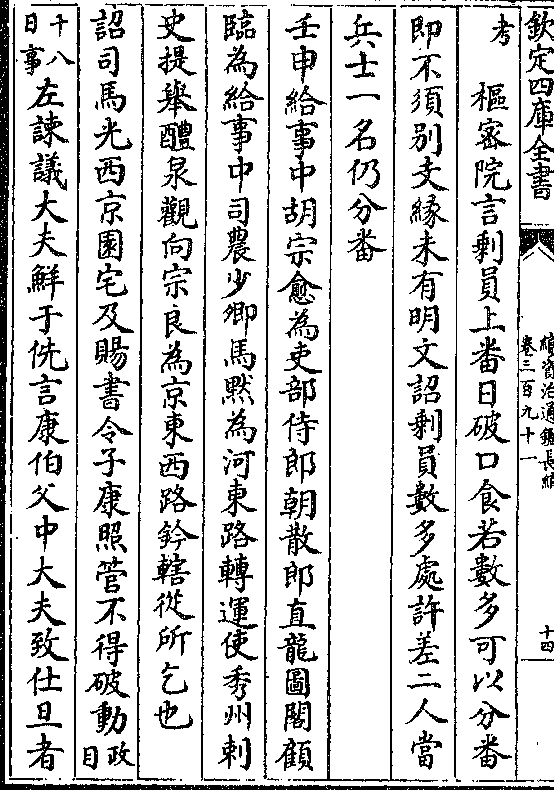 欽定四庫全書
續資治通鑑長編
卷三百九十一
十四
考
樞密院言剰員上番日破口食若數多可以分番
即不須別支縁未有明文詔剰員數多處許差二人當
兵士一名仍分番
壬申給事中胡宗愈為吏部侍郎朝散郎直龍圖閣顧
臨為給事中司農少卿馬黙為河東路轉運使秀州刺
史提舉醴泉觀向宗良為京東西路鈐轄從所乞也
詔司馬光西京園宅及賜書令子康照管不得破動政目
十八日事左諫議大夫鮮于侁言康伯父中大夫致仕旦者